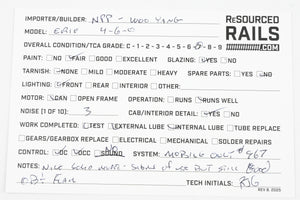 IMPORTER/BUILDER: NPP - WOO YANG
RESOURCED RAILS .COM
MODEL: ERIE 4-6-0
OVERALL CONDITION/TCA GRADE: C - 1 - 2 - 3 - 4 - 5 - 6 - 8 - 9
PAINT: NO FAIR GOOD EXCELLENT GLAZING: YES NO
TARNISH: NONE MILD MODERATE HEAVY SPARE PARTS: YES NO
LIGHTING: FRONT REAR INTERIOR OTHER:
MOTOR: CAN OPEN FRAME OPERATION: RUNS RUNS WELL
NOISE (1 OF 10): 3 CAB/INTERIOR DETAIL: YES NO
WORK COMPLETED: TEST EXTERNAL LUBE INTERNAL LUBE TUBE REPLACE
GEARS/GEARBOX REPLACE ELECTRICAL MECHANICAL SOLDER REPAIRS
CONTROL: DC DCC SOUND NO SYSTEM: MOBILE ONLY # 467
NOTES: NICE GOLD MOTOR - SIGNS OF USE BUT STILL GOOD
TECH INITIALS:
REV B. 2025